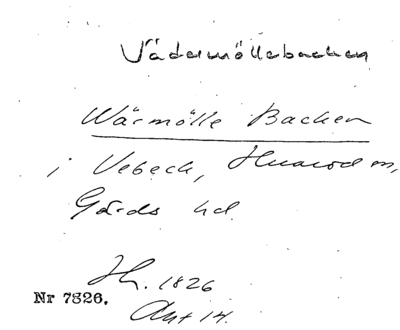 Vädermöllebacken
Wärmölle Backen
i Vebeck, Huarod sn,
Gärds hd.
Hr. 1826
Nr 7326.
Akt 14.